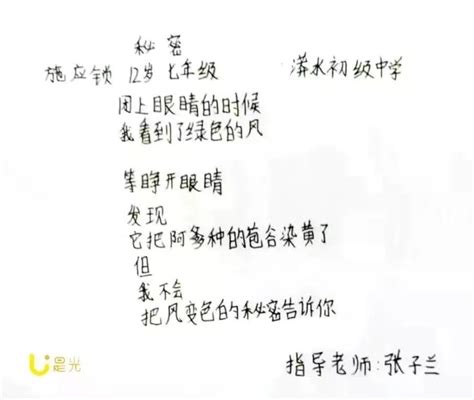 秘密
施应锁 12岁 七年级 漭水初级中学
闭上眼睛的时候
我看到了绿色的风
等睁开眼睛
发现
它把阿爹种的苞谷染黄了
但
我不会
把风变色的秘密告诉你
是光
指导老师:张子兰